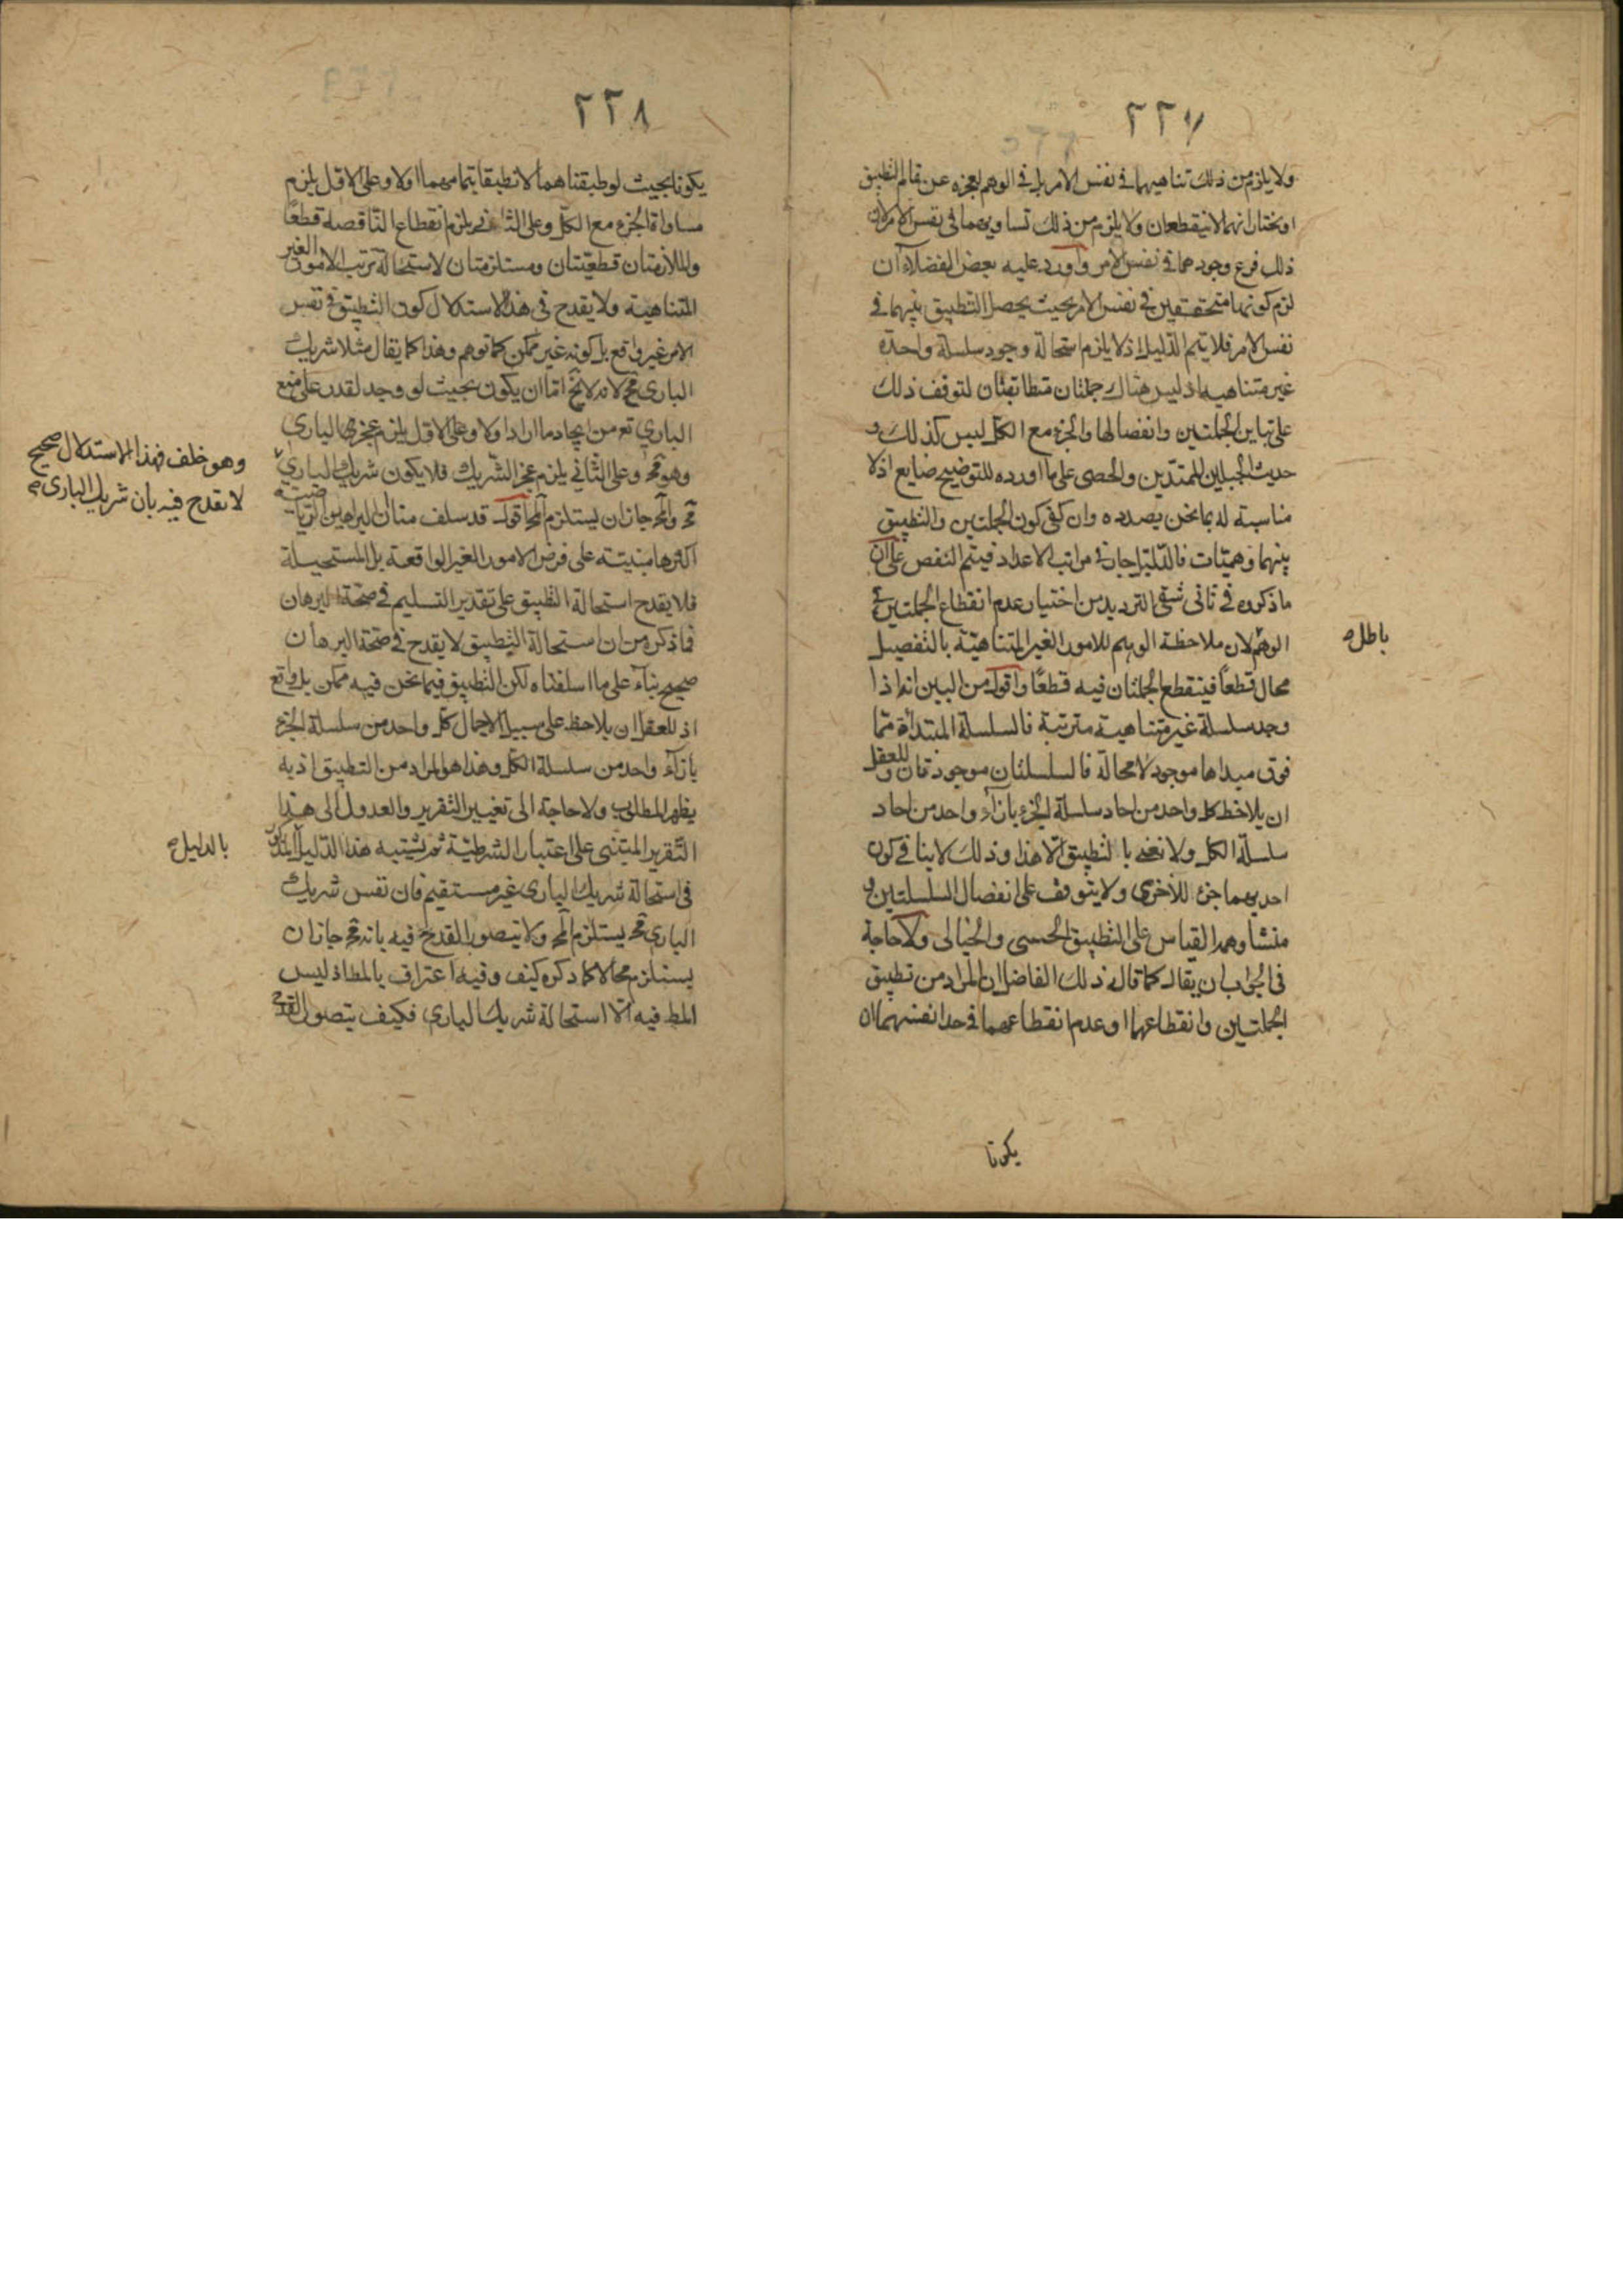 ٢٢٧
ولا يلزم من ذلك تناهيهما في نفس الامر بل في الوهم لعجزه عن تمام التطبيق
او يختار انهما لا ينقطعان ولا يلزم من ذلك تساويهما في نفس الامر لان
ذلك فرع وجودهما في نفس الامر واورد عليه بعض الفضلاء ان
لزم كونهما متحققين في نفس الامر بحيث يحصل التطبيق بينهما في
نفس الامر فلا يتم الدليل اذ لا يلزم استحالة وجود سلسلة واحدة
غير متناهية اذ ليس هناك جملتان متطابقتان لتوقف ذلك
على تباين الجملتين وانفصالها والجزء مع الكل ليس كذلك و
حديث الجبلين الممتدين والحصى على ما اورده للتوضيح ضايع اذ لا
مناسبة له بما نحن بصدده وان كفى كون الجملتين والتطبيق
بينهما وهميات فالدليل جار في مراتب الاعداد فيتم النقض على ان
ما ذكروه في ثاني شقي الترديد من اختيار عدم انقطاع الجملتين في
الوهم لان ملاحظة الوهم للامور الغير المتناهية بالتفصيل
باطل صح
محال قطعاً فينقطع الجملتان فيه قطعًا واقول من البين انه اذا
وجد سلسلة غير متناهية مترتبة فالسلسلة المبتدأة مما
فوق مبداها موجود لا محالة فالسلسلتان موجودتان وللعقل
ان يلاحظ كل واحد من احاد سلسلة الجزء بازاء واحد من احاد
سلسلة الكل ولا نعني بالتطبيق الا هذا وذلك لا ينافي كون
احديهما جزء للأخرى ولا يتوقف على انفصال السلسلتين و
منشأ وهمه القياس على التطبيق الحسي والخيالي ولا حاجة
في الجواب ان يقال كما قال ذلك الفاضل ان المراد من تطبيق
الجملتين وانقطاعهما او عدم انقطاعهما في حد انفسهما ان
يكونا
٢٢٨
يكونا بحيث لو طبقناهما لانطبقا بتمامهما اولا وعلى الاول يلزم
مساواة الجزء مع الكل وعلى الثاني يلزم انقطاع الناقصة قطعًا
والملازمتان قطعيتان ومستلزمتان لاستحالة ترتب الامور الغير
المتناهية ولا يقدح في هذا الاستدلال كون التطبيق في نفس
الامر غير واقع بل كونه غير ممكن كما توهم وهذا كما يقال مثلا شريك
الباري مح لانه لا يخ اما ان يكون بحيث لو وجد لقدر على منع
الباري تع من ايجاد ما اراد اولا وعلى الاول يلزم عجز الباري
وهو مح وعلى الثاني يلزم عجز الشريك فلا يكون شريك الباري
وهو خلف فهذا الاستدلال صحيح
لا يقدح فيه بان شريك الباري صح
مح والمح جاز ان يستلزم المح اقول قد سلف منا ان البراهين الرياضية
اكثرها مبنية على فرض الامور الغير الواقعة بل المستحيلة
فلا يقدح استحالة التطبيق على تقدير التسليم في صحة البرهان
فما ذكره من ان استحالة التطبيق لا يقدح في صحة البرهان
صحيح بناء على ما اسلفناه لكن التطبيق فيما نحن فيه ممكن بل واقع
اذ للعقل ان يلاحظ على سبيل الاجمال كل واحد من سلسلة الجزء
بازاء واحد من سلسلة الكل وهذا هو المراد من التطبيق اذ به
يظهر المطلوب ولا حاجة الى تغيير التقرير والعدول الى هذا
التقرير المبتنى على اعتبار الشرطية ثم تشبيه هذا الدليل المذكور
بالدليل صح
في استحالة شريك الباري غير مستقيم فان نفس شريك
الباري مح يستلزم المح ولا يتصور القدح فيه بانه مح جاز ان
يستلزم محالا كما ذكره كيف وفيه اعتراف بالمط اذ ليس
المط فيه الا استحالة شريك الباري فكيف يتصور القدح